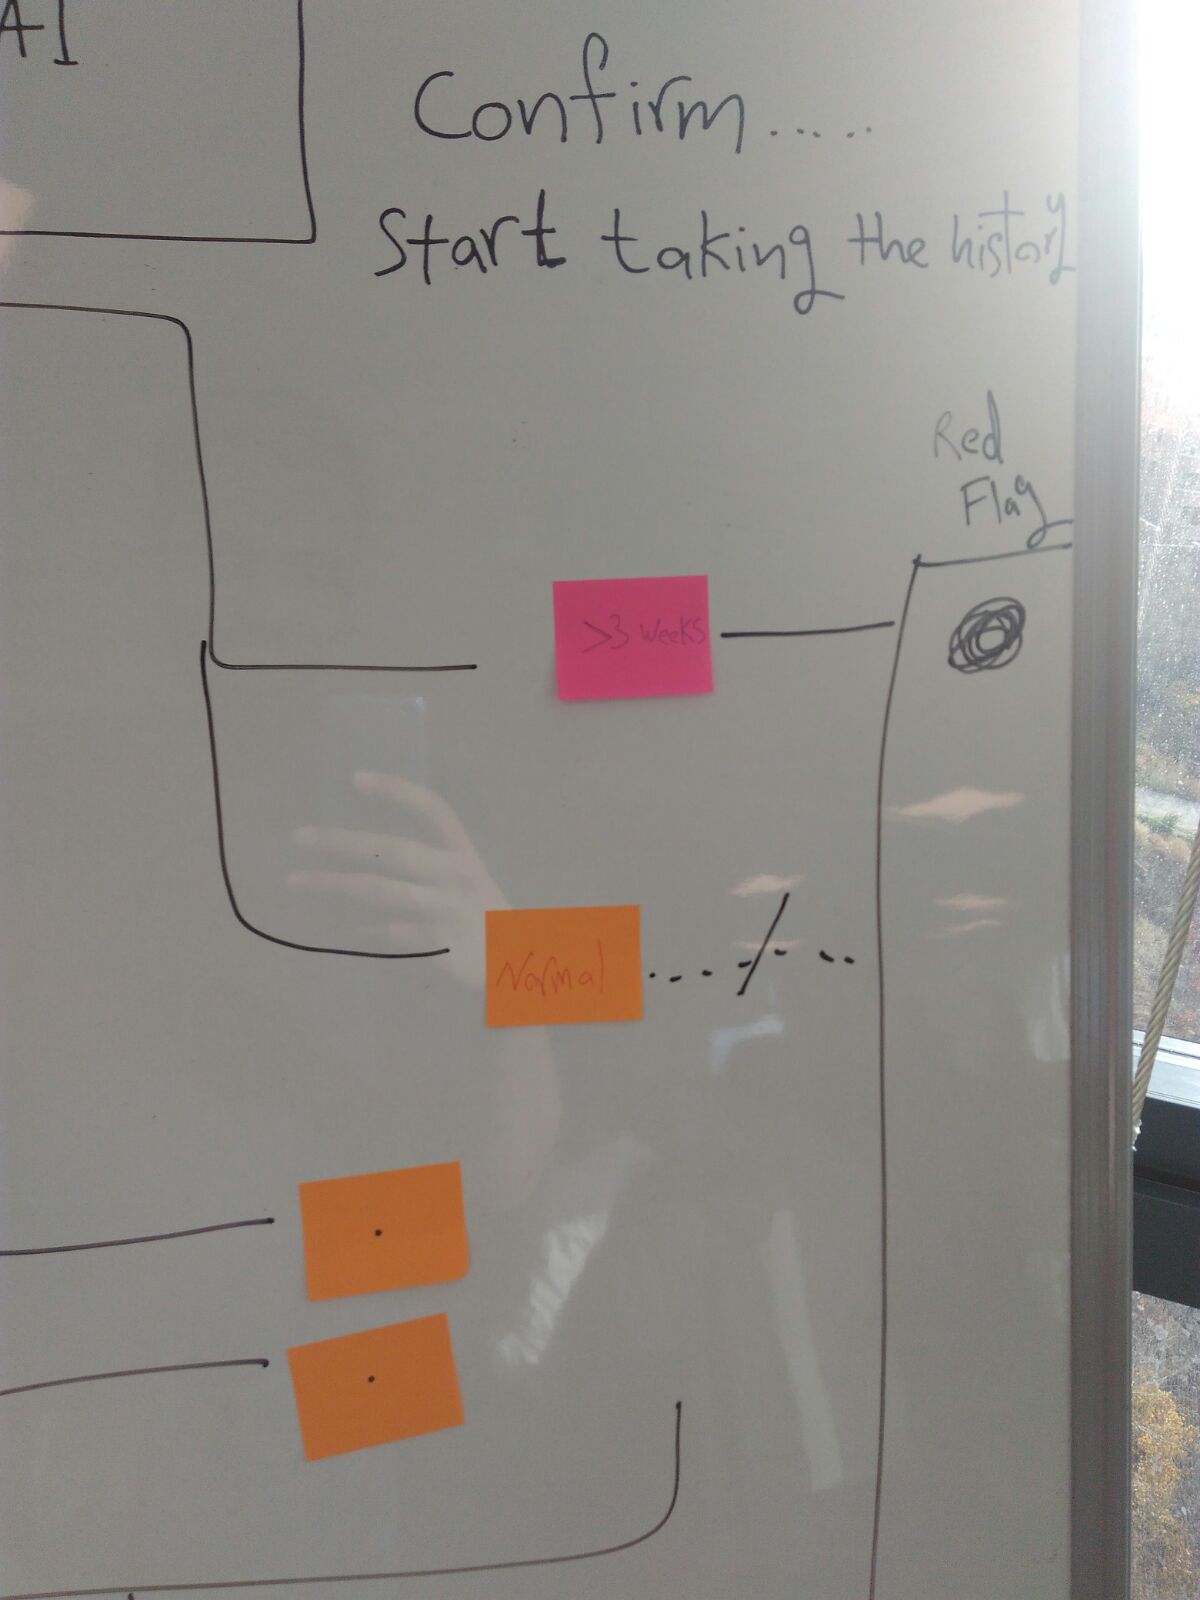 AI
Confirm.....
Start taking the history
Red
Flag
>3 weeks
Normal